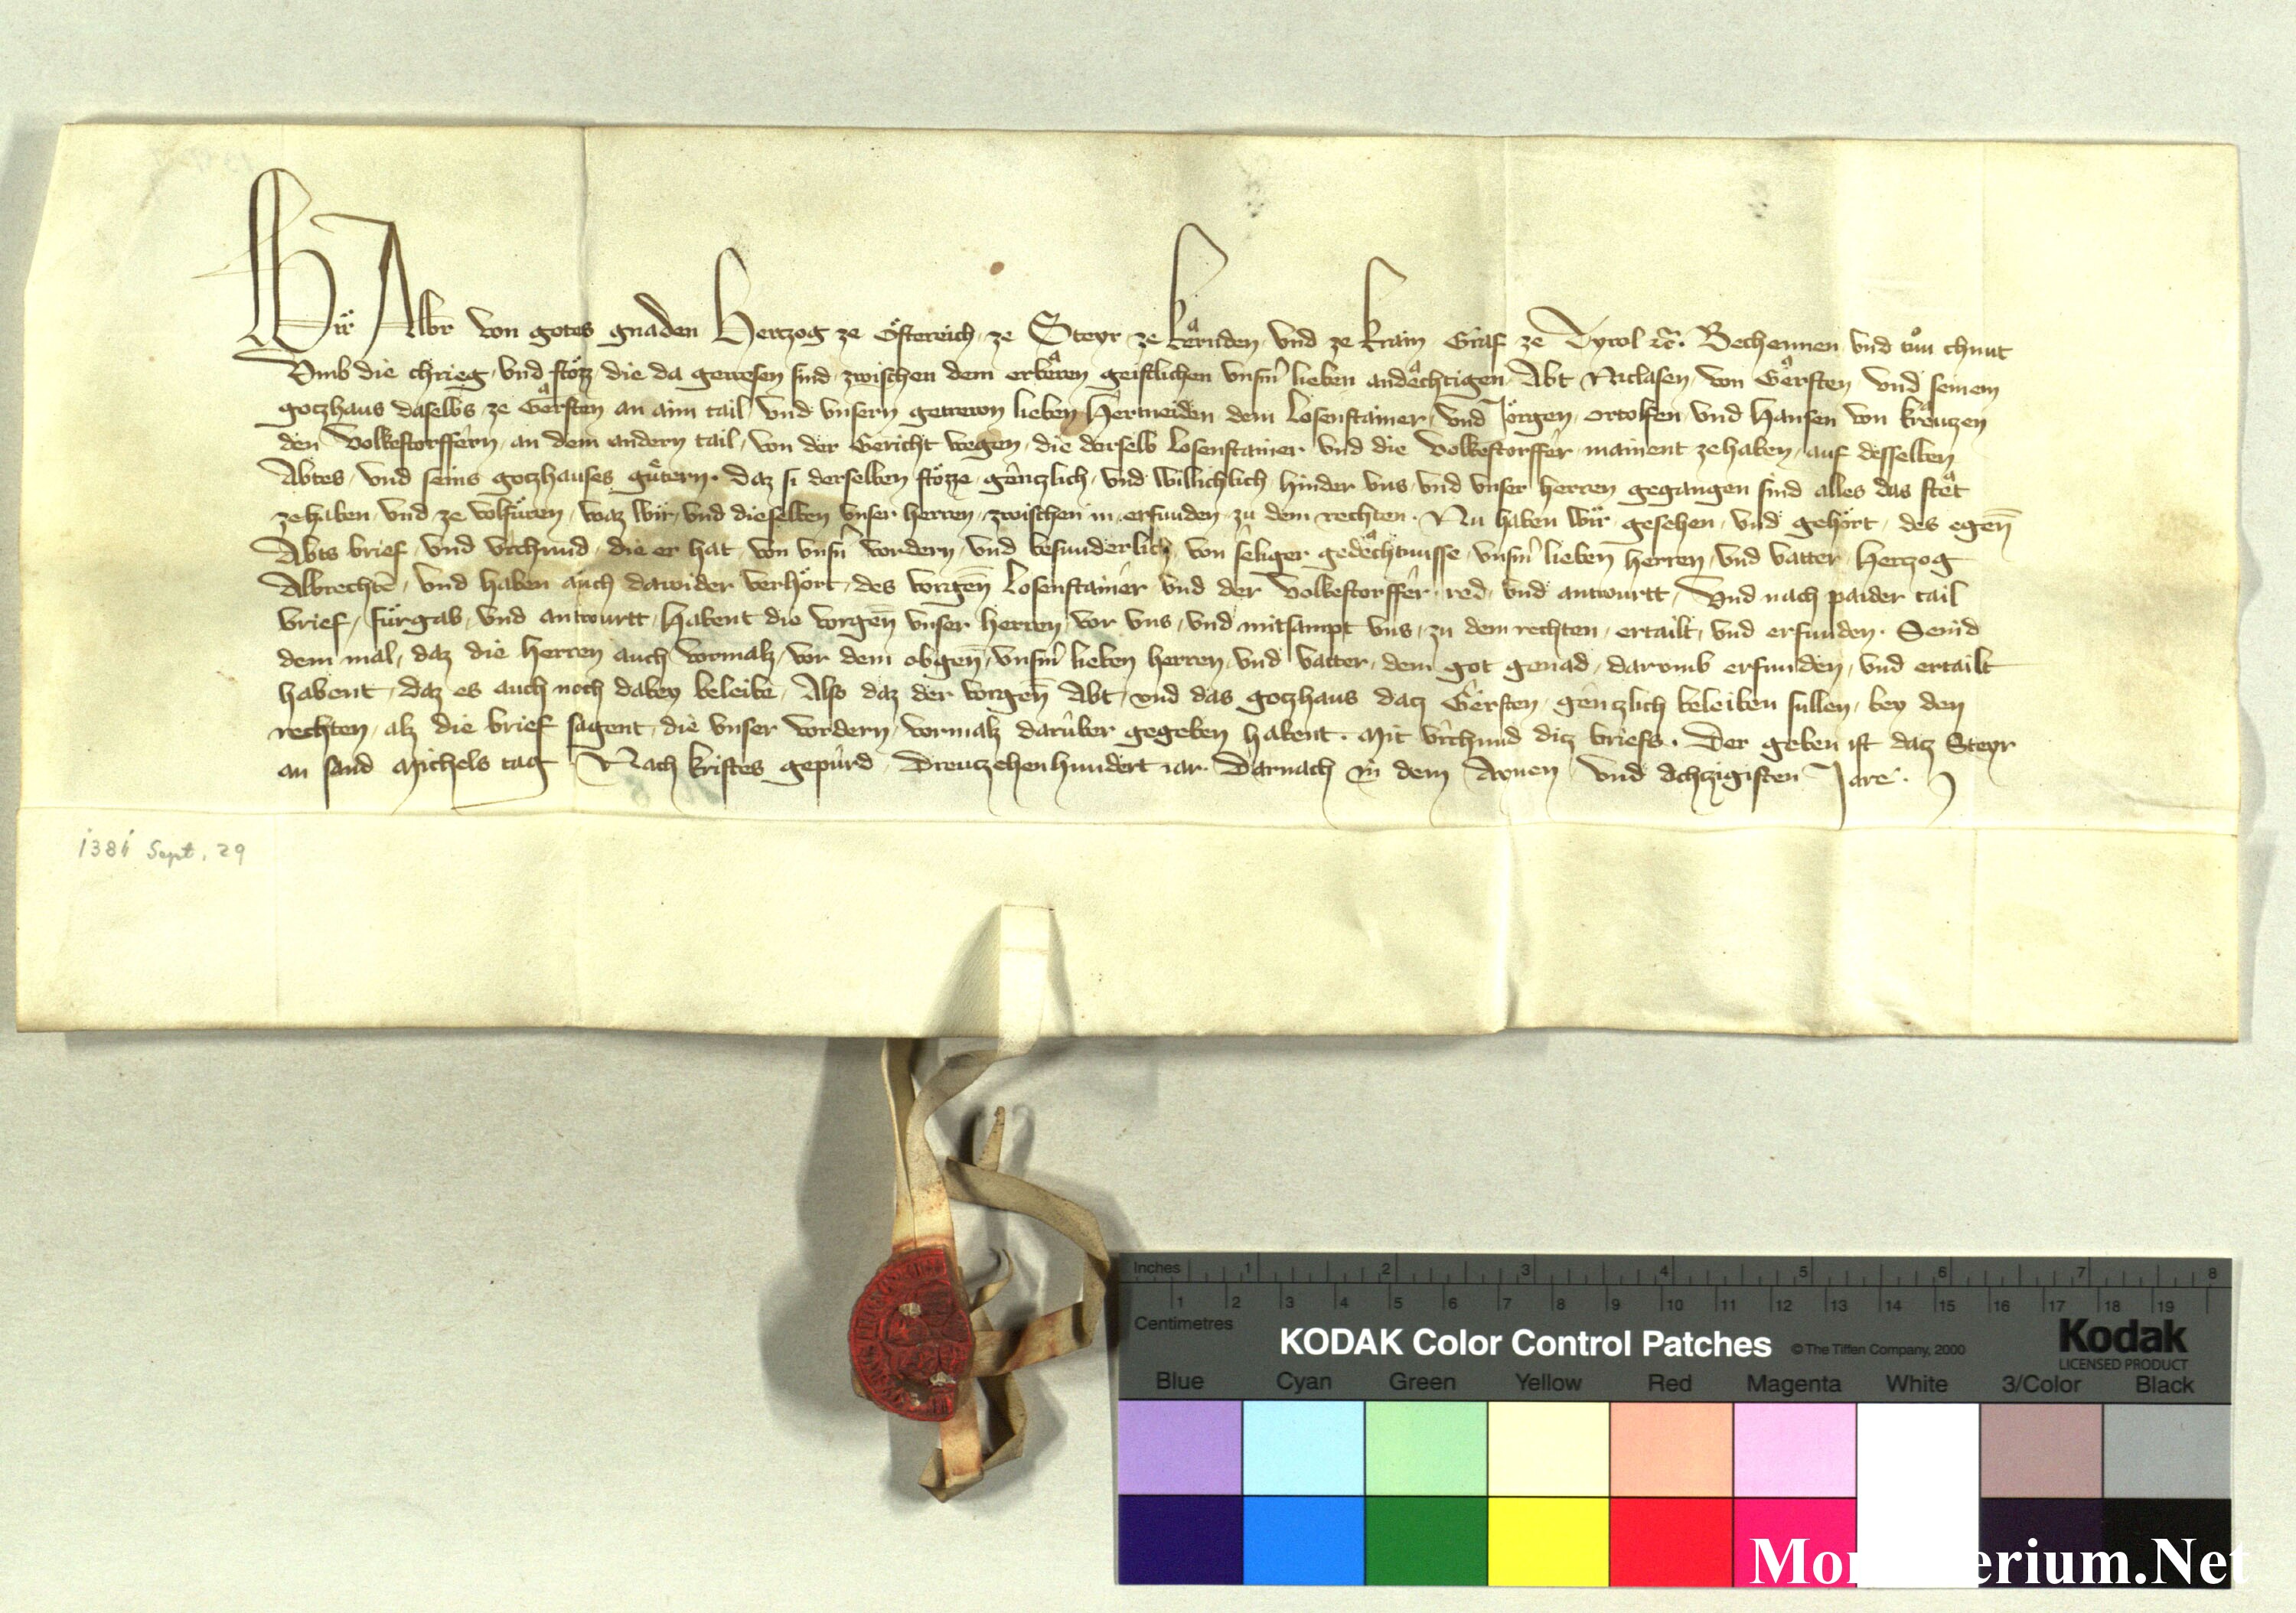 Wir Albr von gotes gnaden Hertzog ze Österreich ze Steyr ze Kernden und ze Krain Graf ze Tyrol etc. Bechennen und tůn chunt
Vmb die chrieg und stözz die da gewesen sind zwischen dem erbern geistlichen unsm lieben andechtigen Abt Niclasen von Gersten und seinem
gotzhaus daselbs ze Gersten an aim tail und unsern getrewn lieben Hertneiden dem Losenstainer und Jörgen Ortolfen und Hansen von Kreuzen
den Volkestorffern an dem andern tail von der Gericht wegen die derselb Losenstainer und die Volkestorffer mainent zehaben auf desselben
Abtes und seins gotzhauses gütern. Daz si derselben stözze gentzlich und willichlich hinder uns und unser herren gegangen sind alles das stet
zehaben und ze volfüren waz wir und dieselben unser herren zwischen in erfunden zu dem rechten. Nu haben wir gesehen und gehört des egen
Abts brief und urchund die er hat von unsn vordern und besunderlich von seliger gedechtnusse unsm lieben herren und vatter Hertzog
Albrechten und haben auch dawider verhört des vorgen Losenstainer und der Volkestorffer red und antwurtt Und nach paider tail
brief fürgab und antwurtt habent die vorgen unser herren vor uns und mitsampt uns zu dem rechten ertailt und erfunden. Seind
dem mal daz die herren auch vormalz vor dem obgen unsm lieben herren und vatter dem got genad darumb erfunden und ertailt
habent daz es auch noch dabey beleibe Also daz der vorgen Abt und das gotzhaus datz Gersten gentzlich beleiben sullen bey den
rechten alz die brief sagent die unser vordern vormalz darüber gegeben habent. Mit urchund ditz briefs. Der geben ist datz Steyr
an sand Michels tag Nach Kristes gepürd Dreutzehenhundert iar. Darnach in dem Aynen und Achtzigisten Jare.
1381 Sept. 29
Inches 1 2 3 4 5 6 7 8
1 2 3 4 5 6 7 8 9 10 11 12 13 14 15 16 17 18 19
Centimetres
KODAK Color Control Patches © The Tiffen Company, 2000 Kodak
LICENSED PRODUCT
Blue Cyan Green Yellow Red Magenta White 3/Color Black
Mon erium.Net